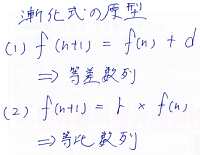 漸化式の原型
(1) f(n+1) = f(n) + d
⇒ 等差数列
(2) f(n+1) = r × f(n)
⇒ 等比数列